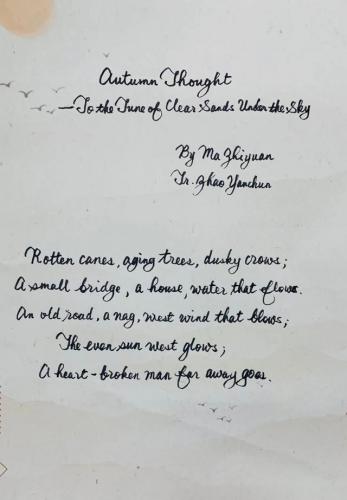 Autumn Thought
—To the Tune of Clear Sands Under the Sky
By Ma Zhiyuan
Tr. Zhao Yanchun
Rotten canes, aging trees, dusky crows;
A small bridge, a house, water that flows.
An old road, a nag, west wind that blows;
The even sun west glows;
A heart-broken man far away goes.